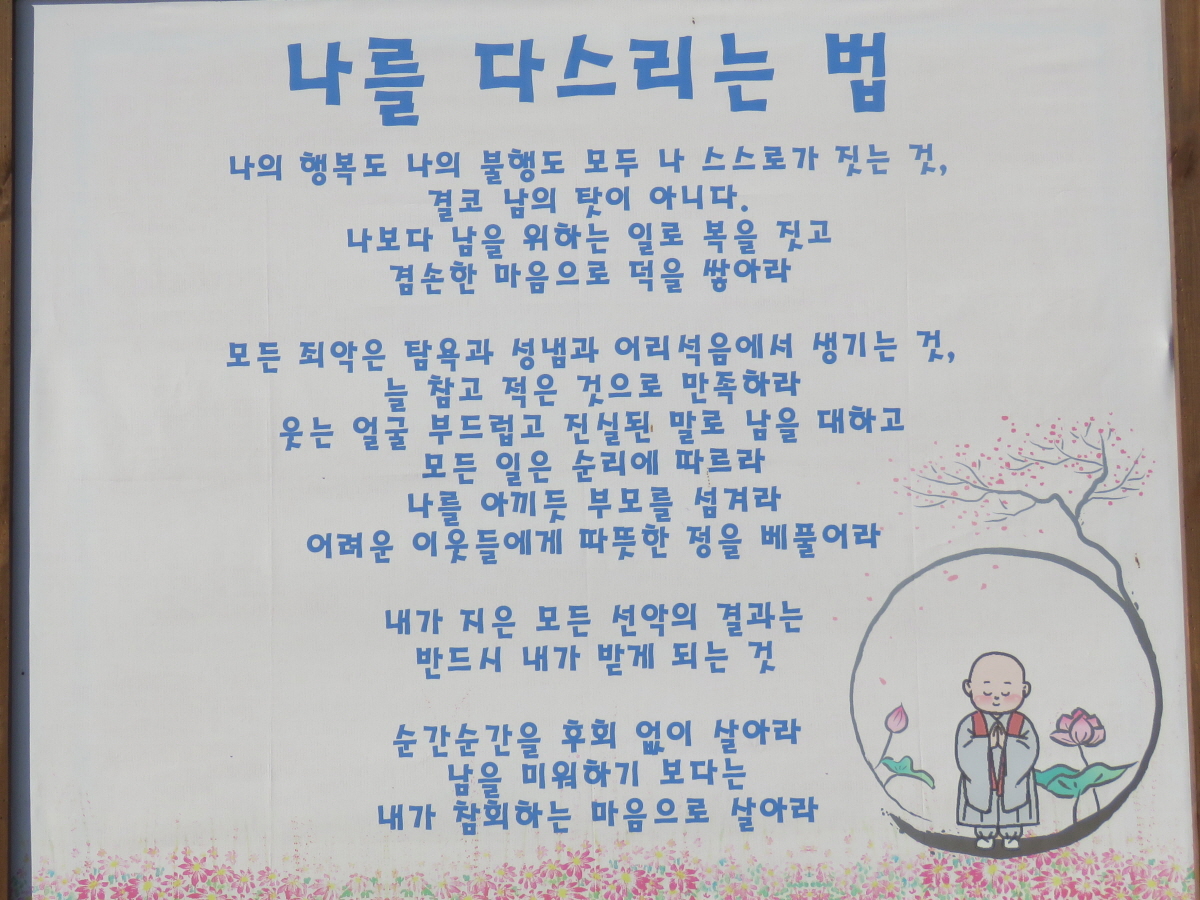 나를 다스리는 법
나의 행복도 나의 불행도 모두 나 스스로가 짓는 것,
결코 남의 탓이 아니다.
나보다 남을 위하는 일로 복을 짓고
겸손한 마음으로 덕을 쌓아라
모든 죄악은 탐욕과 성냄과 어리석음에서 생기는 것,
늘 참고 적은 것으로 만족하라
웃는 얼굴 부드럽고 진실된 말로 남을 대하고
모든 일은 순리에 따르라
나를 아끼듯 부모를 섬겨라
어려운 이웃들에게 따뜻한 정을 베풀어라
내가 지은 모든 선악의 결과는
반드시 내가 받게 되는 것
순간순간을 후회 없이 살아라
남을 미워하기 보다는
내가 참회하는 마음으로 살아라